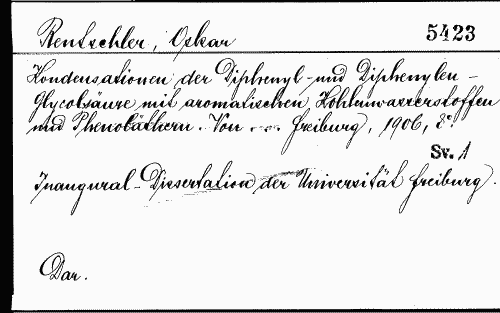 Rentschler, Oskar
5423
Kondensationen der Diphenyl- und Diphenylen-
Glycolsäure mit aromatischen Kohlenwasserstoffen
und Phenoläthern. Von --- Freiburg, 1906, 8°.
Sv. 1
Inaugural-Dissertation der Universität Freiburg.
Dar.